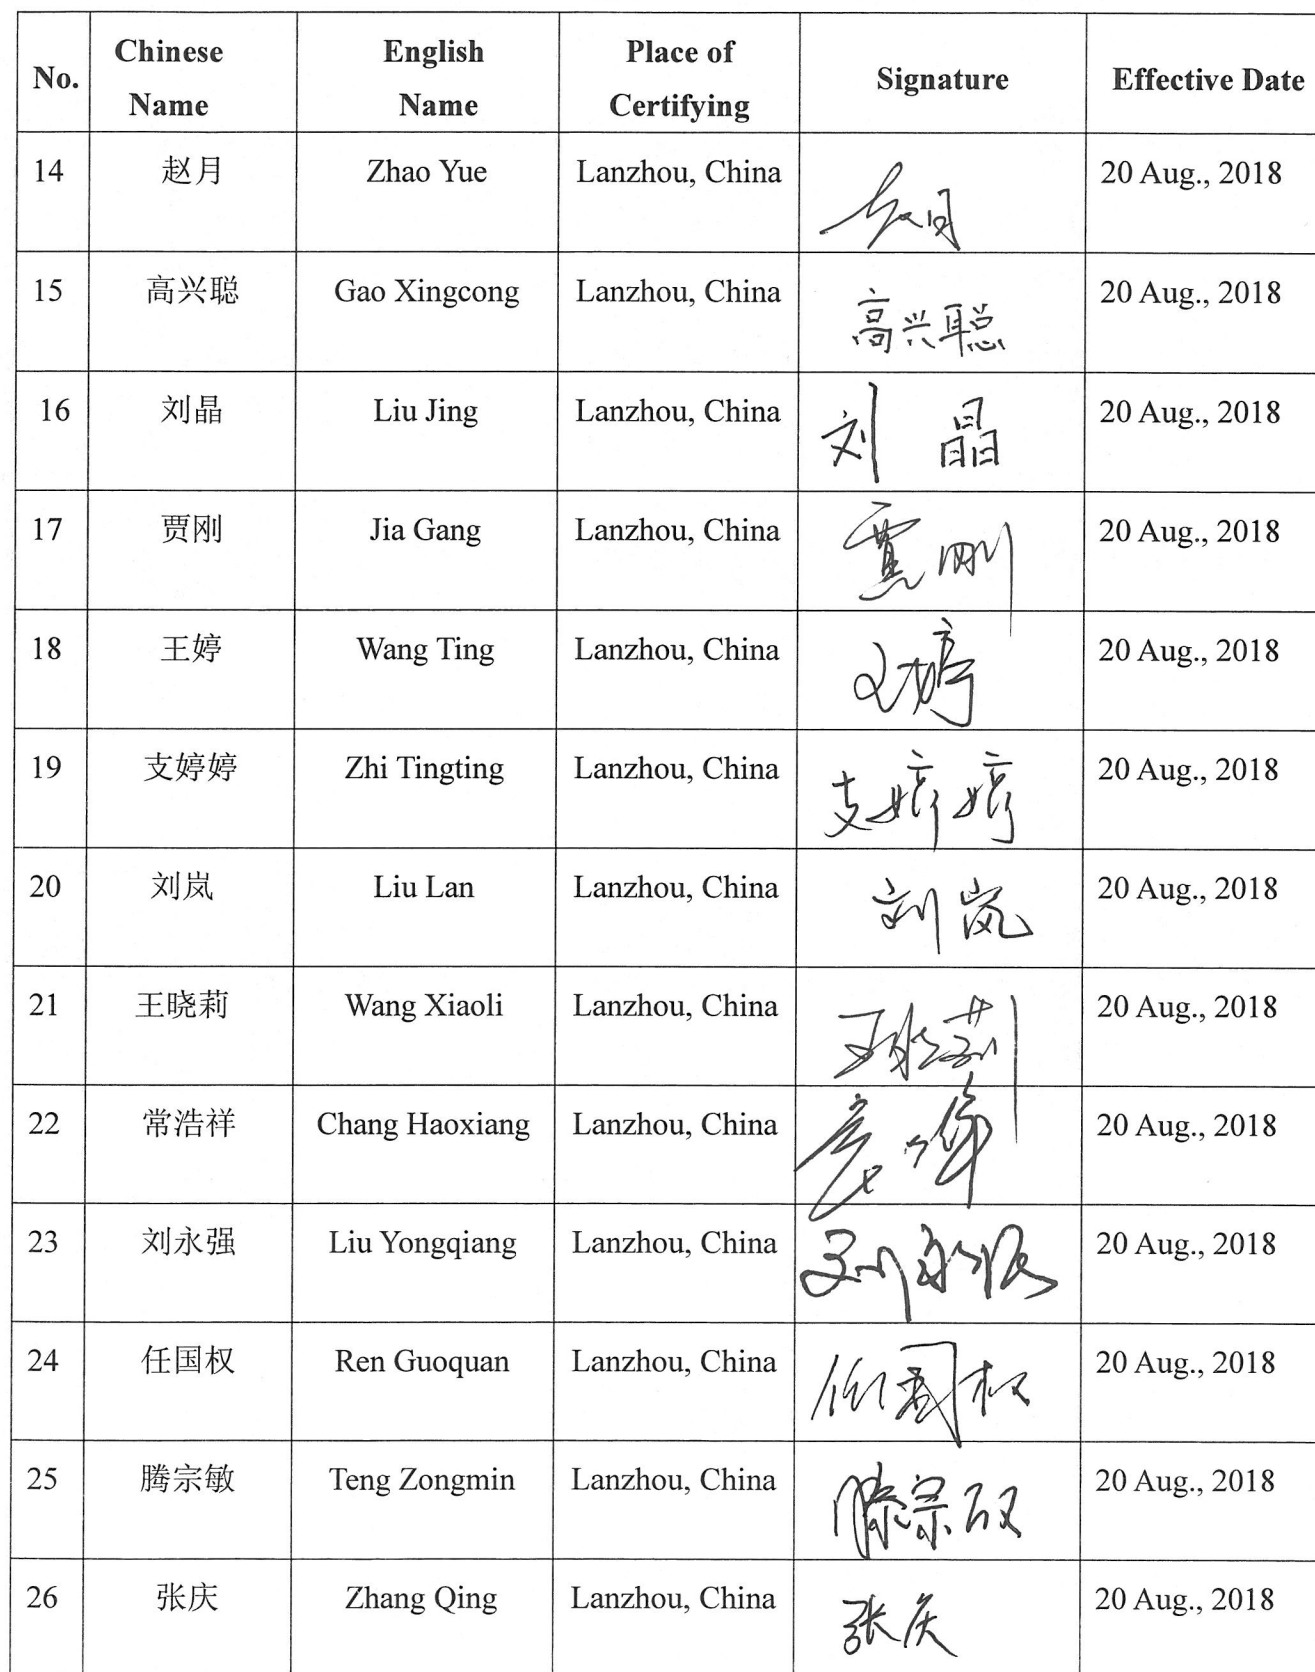 No. Chinese Name English Name Place of Certifying Signature Effective Date
14 赵月 Zhao Yue Lanzhou, China 赵月 20 Aug., 2018
15 高兴聪 Gao Xingcong Lanzhou, China 高兴聪 20 Aug., 2018
16 刘晶 Liu Jing Lanzhou, China 刘晶 20 Aug., 2018
17 贾刚 Jia Gang Lanzhou, China 贾刚 20 Aug., 2018
18 王婷 Wang Ting Lanzhou, China 王婷 20 Aug., 2018
19 支婷婷 Zhi Tingting Lanzhou, China 支婷婷 20 Aug., 2018
20 刘岚 Liu Lan Lanzhou, China 刘岚 20 Aug., 2018
21 王晓莉 Wang Xiaoli Lanzhou, China 王晓莉 20 Aug., 2018
22 常浩祥 Chang Haoxiang Lanzhou, China 20 Aug., 2018
23 刘永强 Liu Yongqiang Lanzhou, China 刘永强 20 Aug., 2018
24 任国权 Ren Guoquan Lanzhou, China 任国权 20 Aug., 2018
25 腾宗敏 Teng Zongmin Lanzhou, China 滕宗敏 20 Aug., 2018
26 张庆 Zhang Qing Lanzhou, China 张庆 20 Aug., 2018